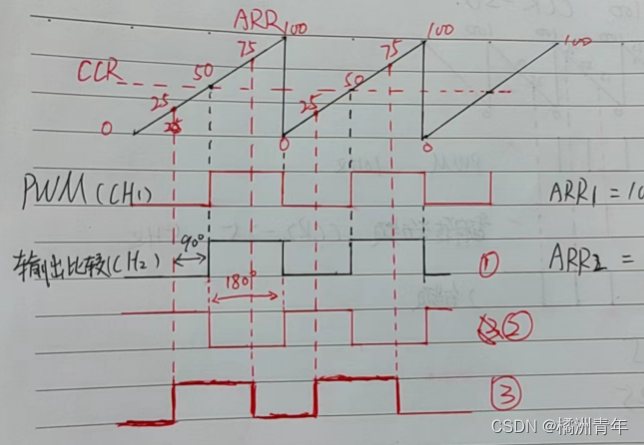 ARR 100 100 100
75 75
CCR 50 50
25 25
0 25 0 0
PWM(CH1) ARR1 = 10
90°
输出比较(CH2) ① ARR2 =
180°
②
③
CSDN @橘洲青年